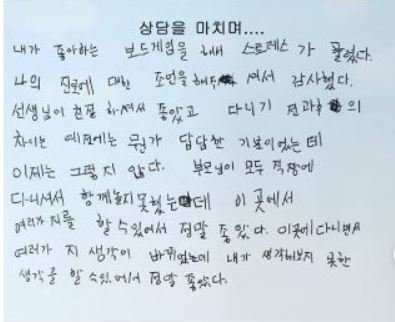 상담을 마치며....
내가 좋아하는 보드게임을 해서 스트레스가 풀렸다.
나의 진로에 대한 조언을 해주 셔서 감사했다.
선생님이 친절 하셔서 좋았고 다니기 전과후의
차이는 예전에는 뭔가 답답한 기분이었는데
이제는 그렇지 않다. 부모님이 모두 직장에
다니셔서 함께놀지못했는데 이 곳에서
여러가지를 할 수있어서 정말 좋았다. 이곳에다니면서
여러가 지 생각이 바뀌었는데 내가 생각해보지 못한
생각을 할 수있어서 정말 좋았다.